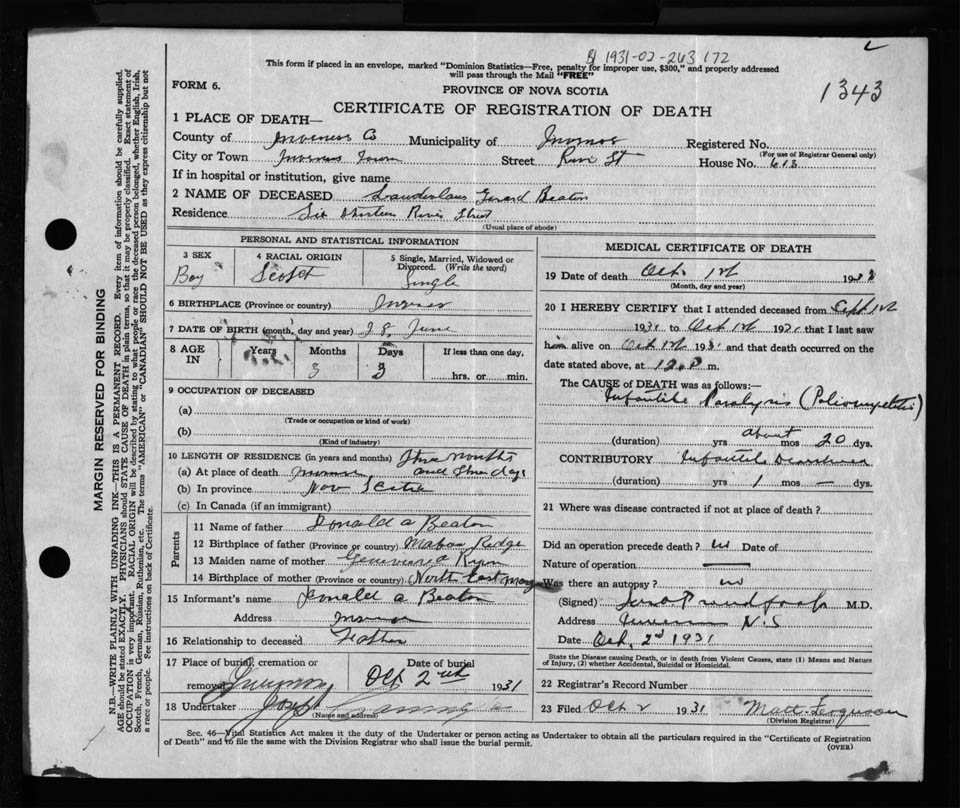 1931-02-263172
This form if placed in an envelope, marked "Dominion Statistics—Free, penalty for improper use, $300," and properly addressed
will pass through the Mail "FREE"
1343
FORM 6.
PROVINCE OF NOVA SCOTIA
CERTIFICATE OF REGISTRATION OF DEATH
MARGIN RESERVED FOR BINDING
N.B.—WRITE PLAINLY WITH UNFADING INK—THIS IS A PERMANENT RECORD. Every item of information should be carefully supplied.
AGE should be stated EXACTLY. PHYSICIANS should STATE CAUSE OF DEATH in plain terms, so that it may be properly classified. Exact statement of
OCCUPATION is very important. RACIAL ORIGIN will be described by stating to what people or race the deceased person belonged, whether English, Irish,
Scotch, French, German, Russian, Ruthenian, etc. The terms "AMERICAN" or "CANADIAN" SHOULD NOT BE USED as they express citizenship but not
a race or people. See instructions on back of Certificate.
1 PLACE OF DEATH—
County of Inverness Co Municipality of Registered No.
(For use of Registrar General only)
City or Town Inverness Town Street River St House No. 613
If in hospital or institution, give name
2 NAME OF DECEASED Gerard Beaton
Residence Six thirteen River Street
(Usual place of abode)
PERSONAL AND STATISTICAL INFORMATION
3 SEX 4 RACIAL ORIGIN 5 Single, Married, Widowed or Divorced. (Write the word)
Boy Scotch Single
6 BIRTHPLACE (Province or country)
7 DATE OF BIRTH (month, day and year) 28 June
8 AGE IN Years Months Days If less than one day,
3 3 hrs. or min.
9 OCCUPATION OF DECEASED
(a)
(Trade or occupation or kind of work)
(b)
(Kind of industry)
10 LENGTH OF RESIDENCE (in years and months) three months
(a) At place of death and three days
(b) In province Nova Scotia
(c) In Canada (if an immigrant)
Parents
11 Name of father Donald A Beaton
12 Birthplace of father (Province or country) Mabou Ridge
13 Maiden name of mother Ryan
14 Birthplace of mother (Province or country) North East
15 Informant's name Donald A Beaton
Address
16 Relationship to deceased Father
17 Place of burial, cremation or removal Date of burial
Oct 2nd 1931
18 Undertaker Joseph
(Name and address)
MEDICAL CERTIFICATE OF DEATH
19 Date of death Oct. 1st 193
(Month, day and year)
20 I HEREBY CERTIFY that I attended deceased from Sept 1st
1931 to Oct 1st 1931 that I last saw
him alive on Oct 1st 1931 and that death occurred on the
date stated above, at 12 m.
The CAUSE of DEATH was as follows:—
Infantile Paralysis (Poliomyelitis)
(duration) yrs about mos 20 dys.
CONTRIBUTORY Infantile Diarrhoea
(duration) yrs 1 mos — dys.
21 Where was disease contracted if not at place of death?
Did an operation precede death? no Date of
Nature of operation —
Was there an autopsy? no
(Signed) M.D.
Address N.S
Date Oct. 2nd 1931
State the Disease causing Death, or in death from Violent Causes, state (1) Means and Nature
of Injury, (2) whether Accidental, Suicidal or Homicidal.
22 Registrar's Record Number
23 Filed Oct 2 1931 Matt Ferguson
(Division Registrar)
Sec. 46—Vital Statistics Act makes it the duty of the Undertaker or person acting as Undertaker to obtain all the particulars required in the "Certificate of Registration
of Death" and to file the same with the Division Registrar who shall issue the burial permit.
(OVER)